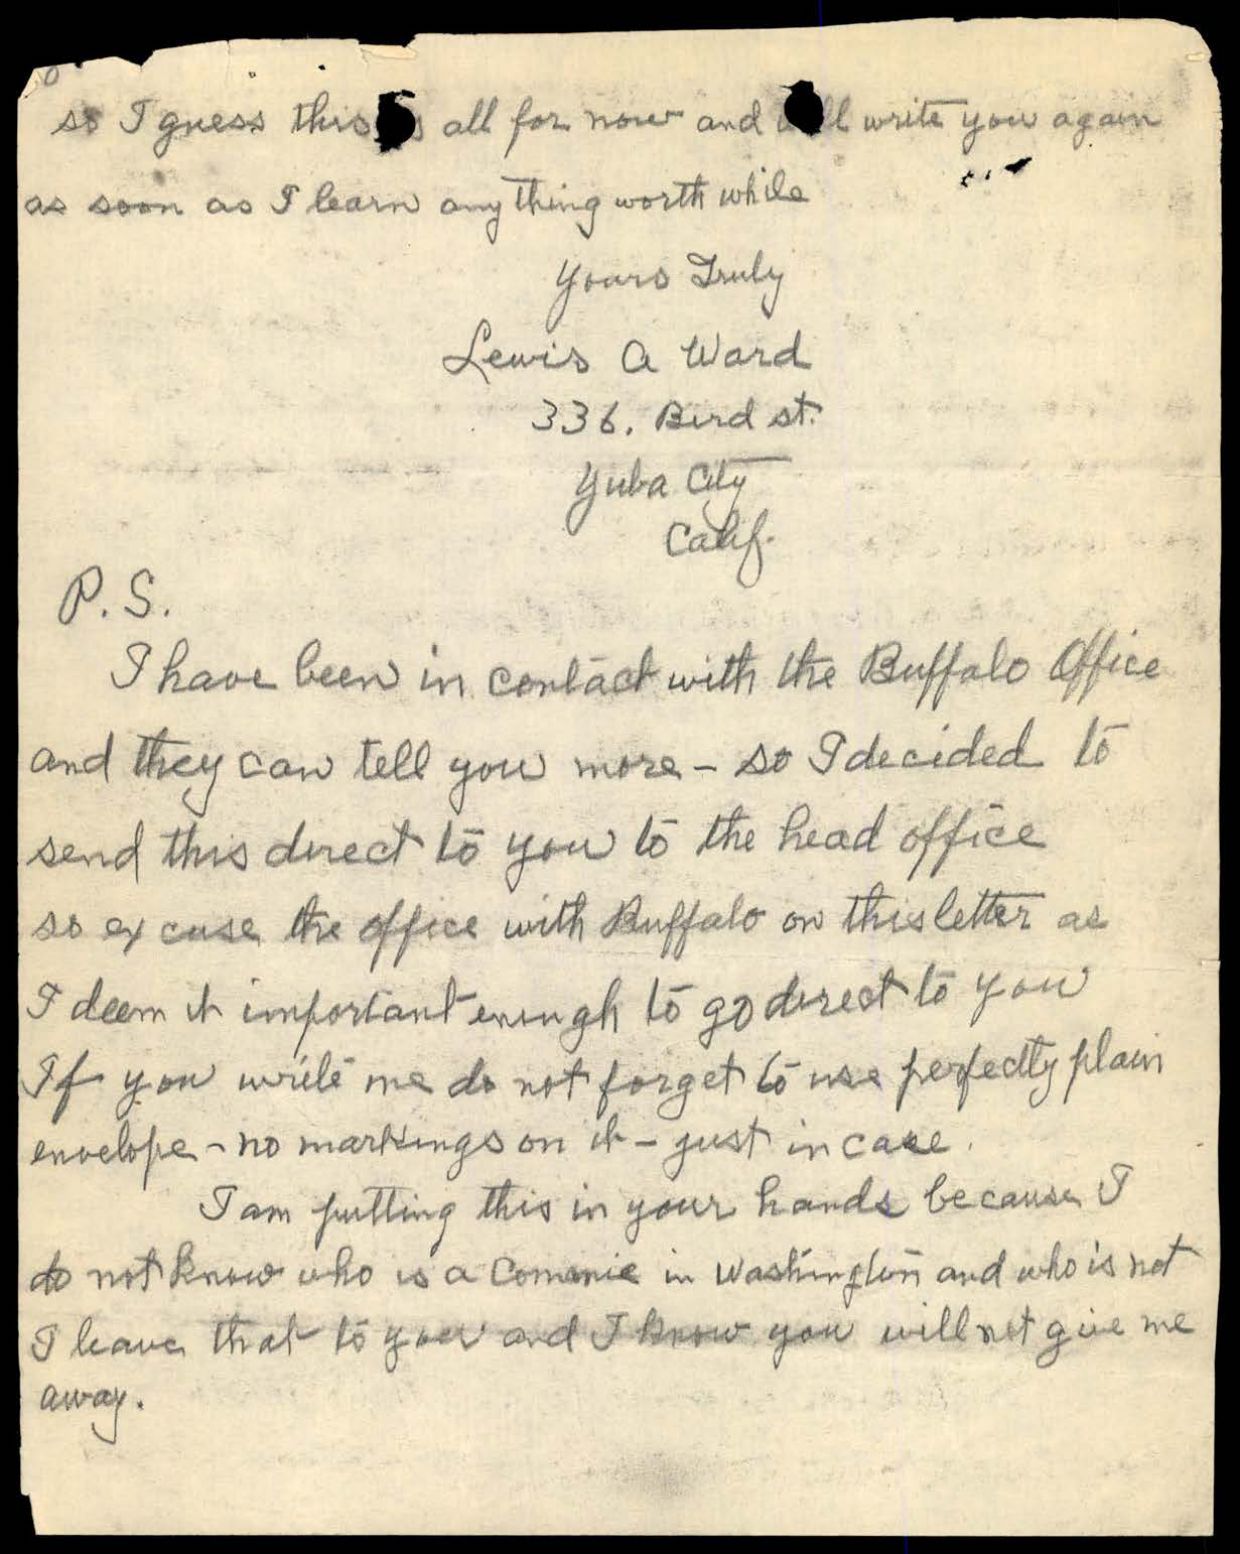 so I guess this is all for now and will write you again
as soon as I learn anything worth while
Yours Truly
Lewis A Ward
336. Bird st.
Yuba City
Calif.
P.S.
I have been in contact with the Buffalo Office
and they can tell you more - so I decided to
send this direct to you to the head office
so excuse the office with Buffalo on this letter as
I deem it important enough to go direct to you
If you write me do not forget to use perfectly plain
envelope - no markings on it - just in case.
I am putting this in your hands because I
do not know who is a Commie in Washington and who is not
I leave that to you and I know you will not give me
away.